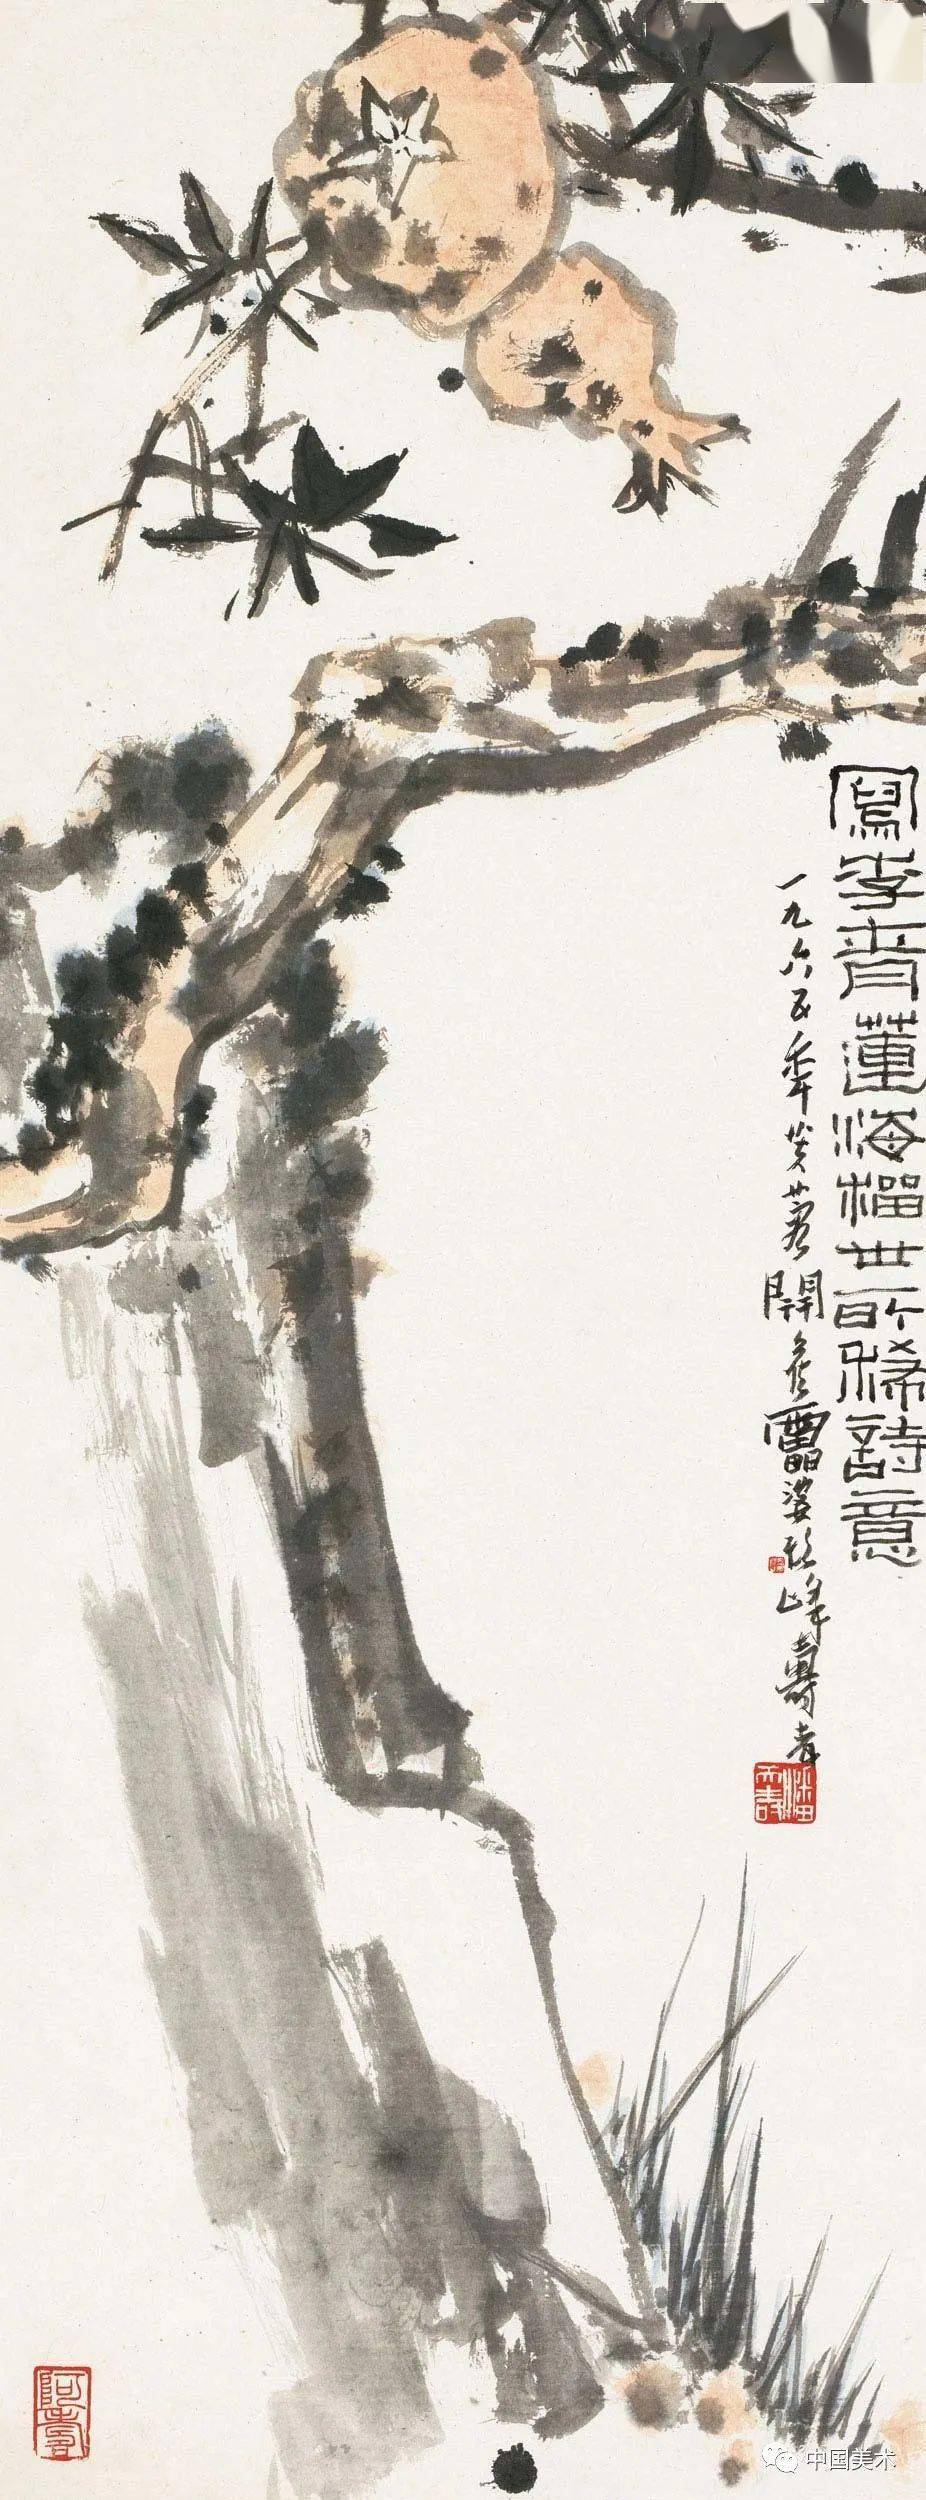 寫李青蓮海榴世所稀詩意
一九六五年芙蓉開候雷婆頭峰壽者
潘天壽
阿壽
中国美术